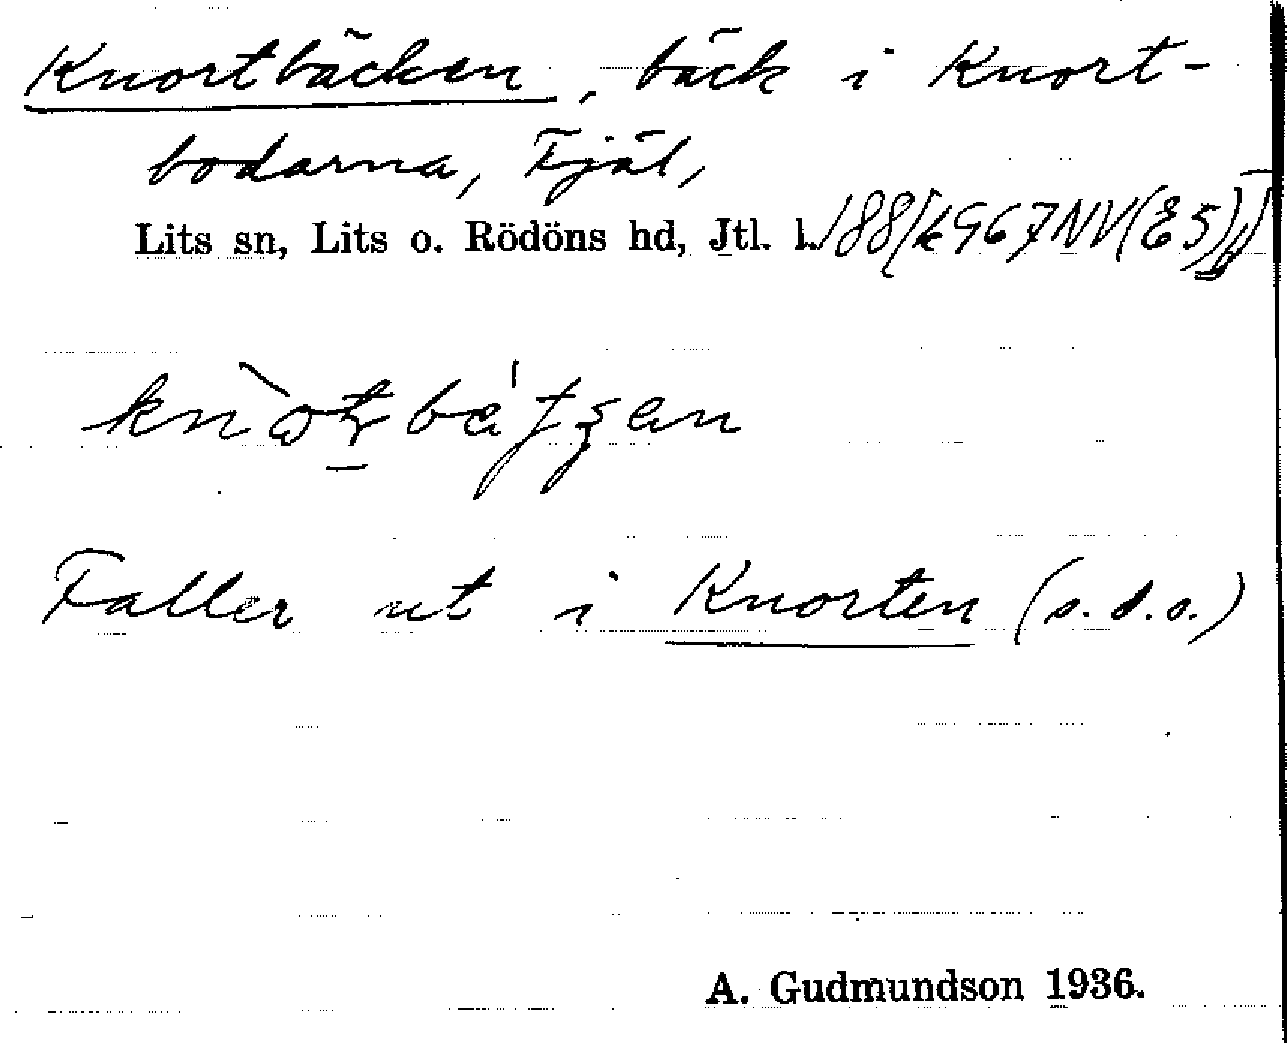 Knortbäcken, bäck i Knort-
bodarna, Fjäl,
Lits sn, Lits o. Rödöns hd, Jtl. l.
Faller ut i Knorten (s.d.o.)
A. Gudmundson 1936.